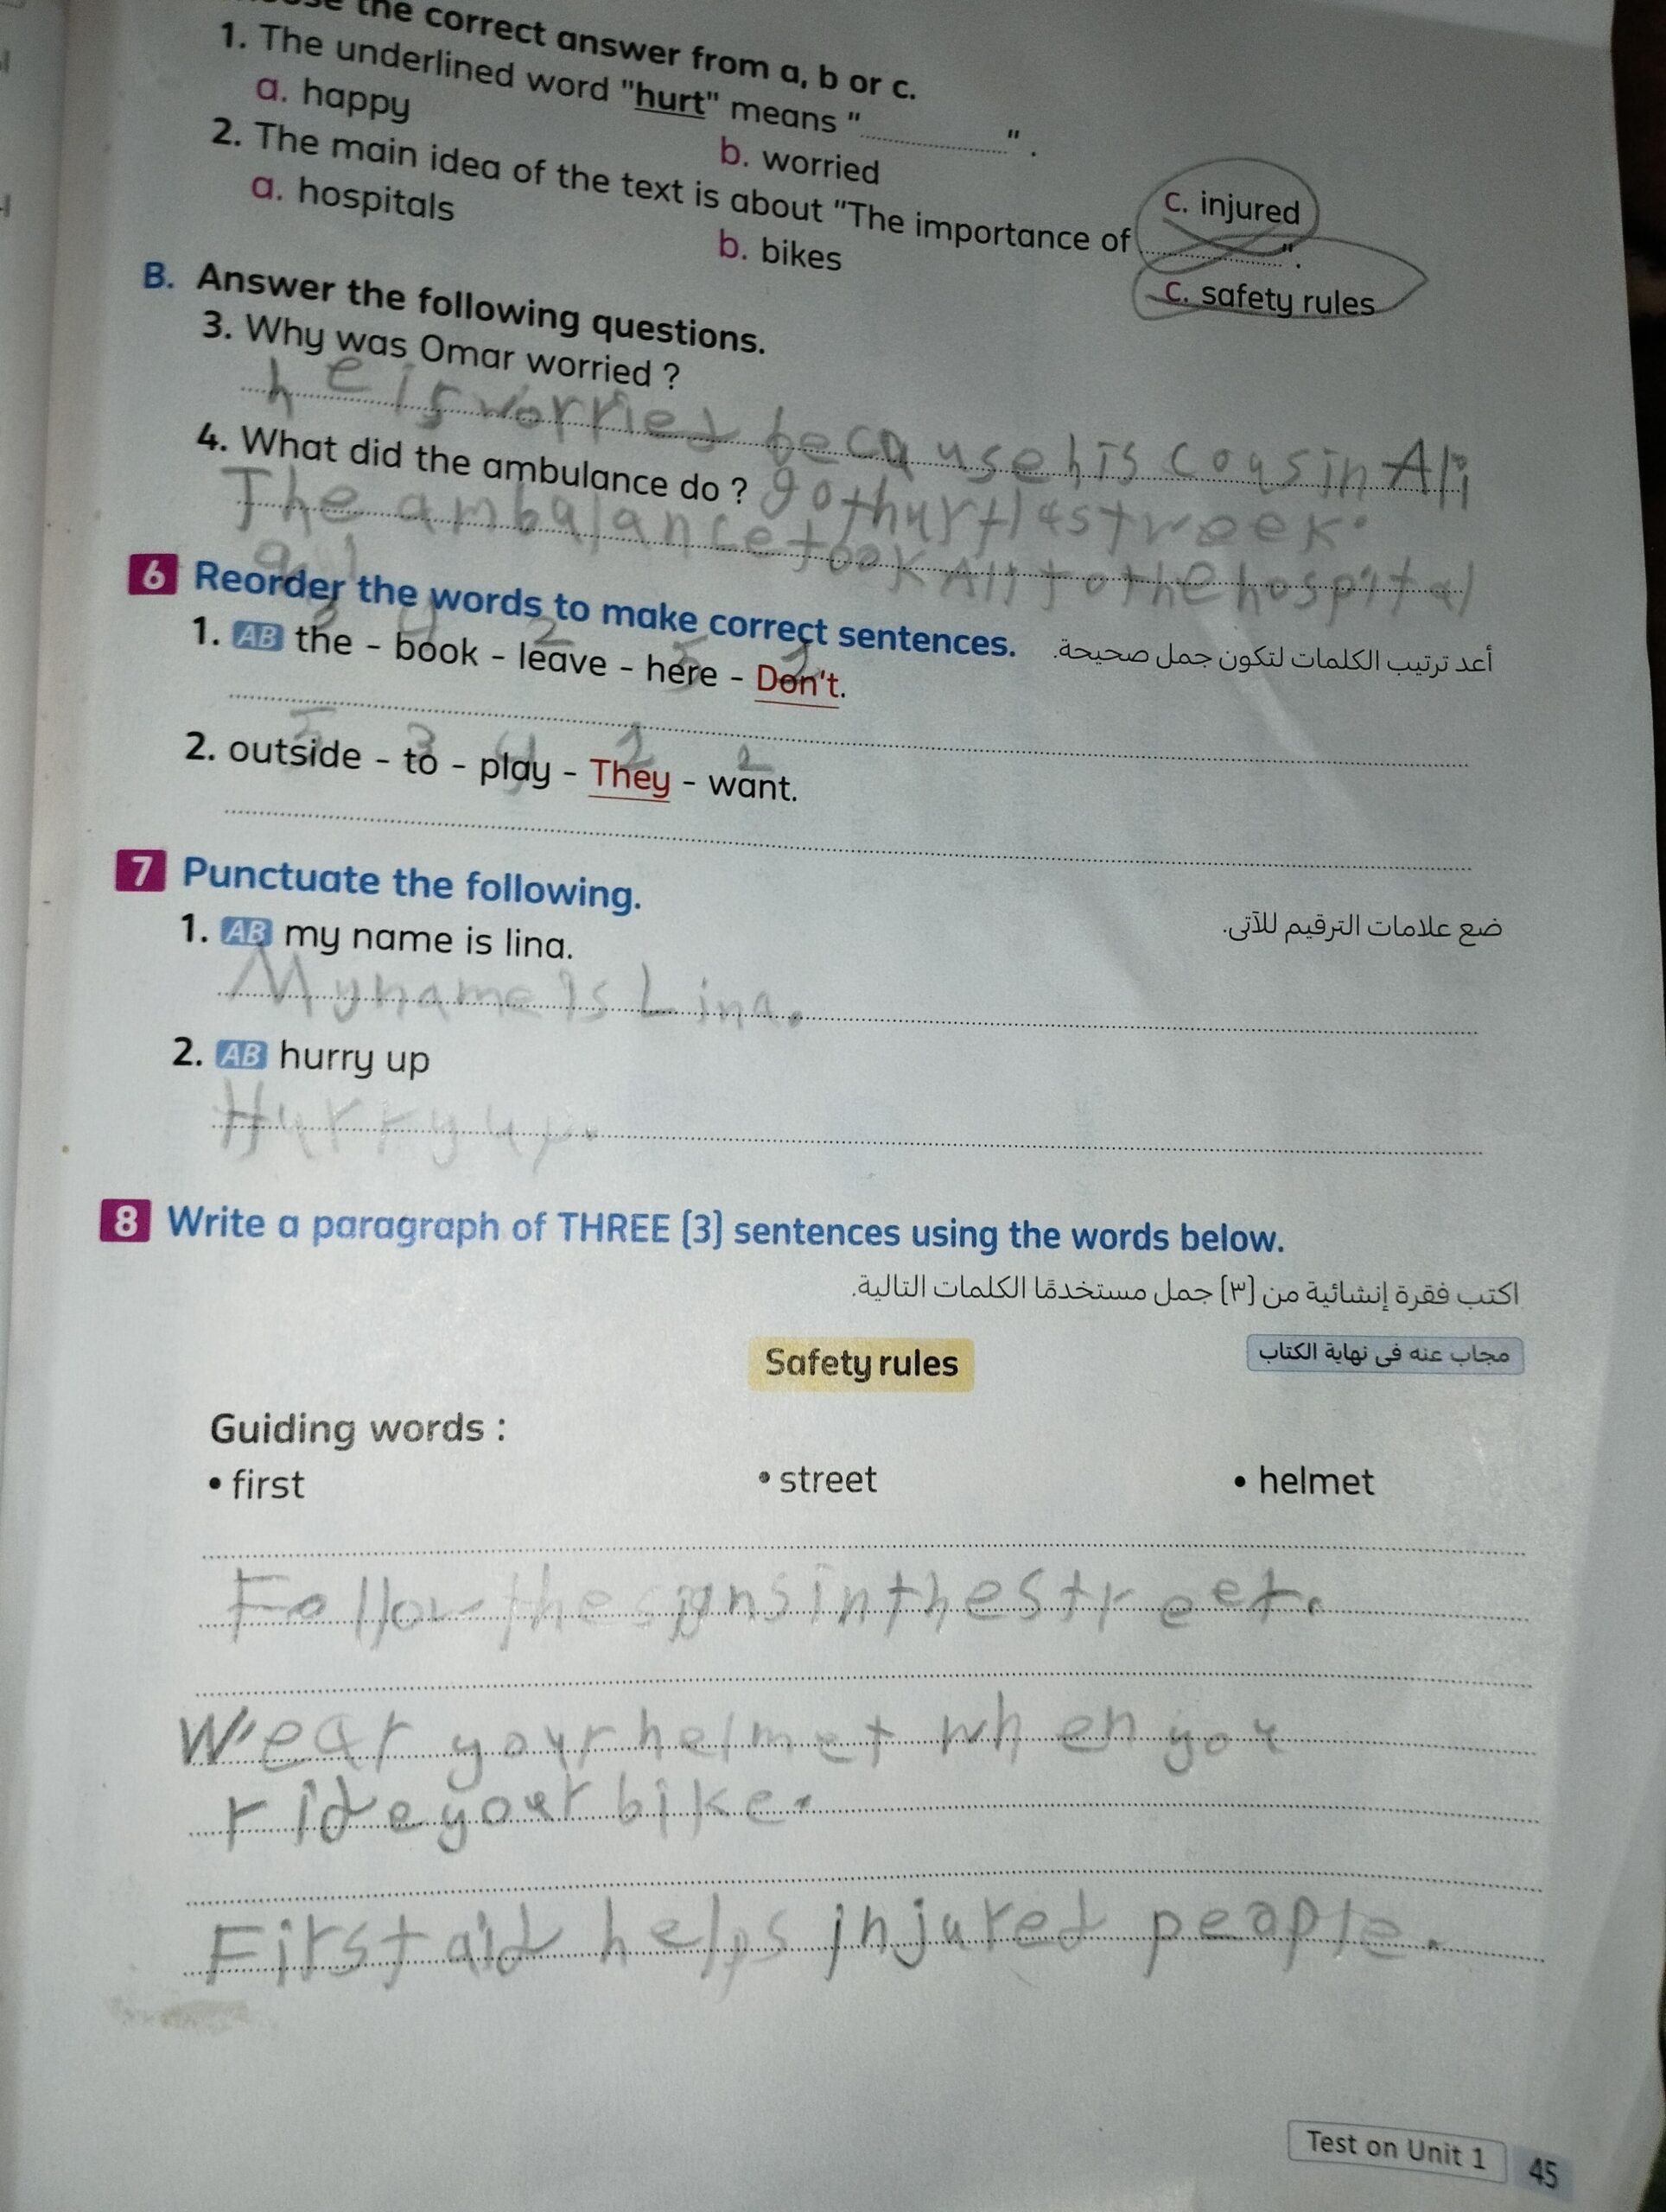 the correct answer from a, b or c.
1. The underlined word "hurt" means "............" .
a. happy b. worried c. injured
2. The main idea of the text is about "The importance of ............".
a. hospitals b. bikes c. safety rules
B. Answer the following questions.
3. Why was Omar worried ?
he is worried because his cousin Ali
got hurt last week.
4. What did the ambulance do ?
The ambalance took Ali to the hospital
6 Reorder the words to make correct sentences.
أعد ترتيب الكلمات لتكون جمل صحيحة.
3 4 2 5
1. AB the - book - leave - here - Don't.
5 3 4 2
2. outside - to - play - They - want.
7 Punctuate the following.
ضع علامات الترقيم للآتى.
1. AB my name is lina.
My name is Lina.
2. AB hurry up
Hurry up.
8 Write a paragraph of THREE (3) sentences using the words below.
اكتب فقرة إنشائية من (٣) جمل مستخدمًا الكلمات التالية.
Safety rules
مجاب عنه فى نهاية الكتاب
Guiding words :
• first • street • helmet
Follow the signs in the street.
Wear your helmet when you
ride your bike.
First aid helps injured people.
Test on Unit 1 45